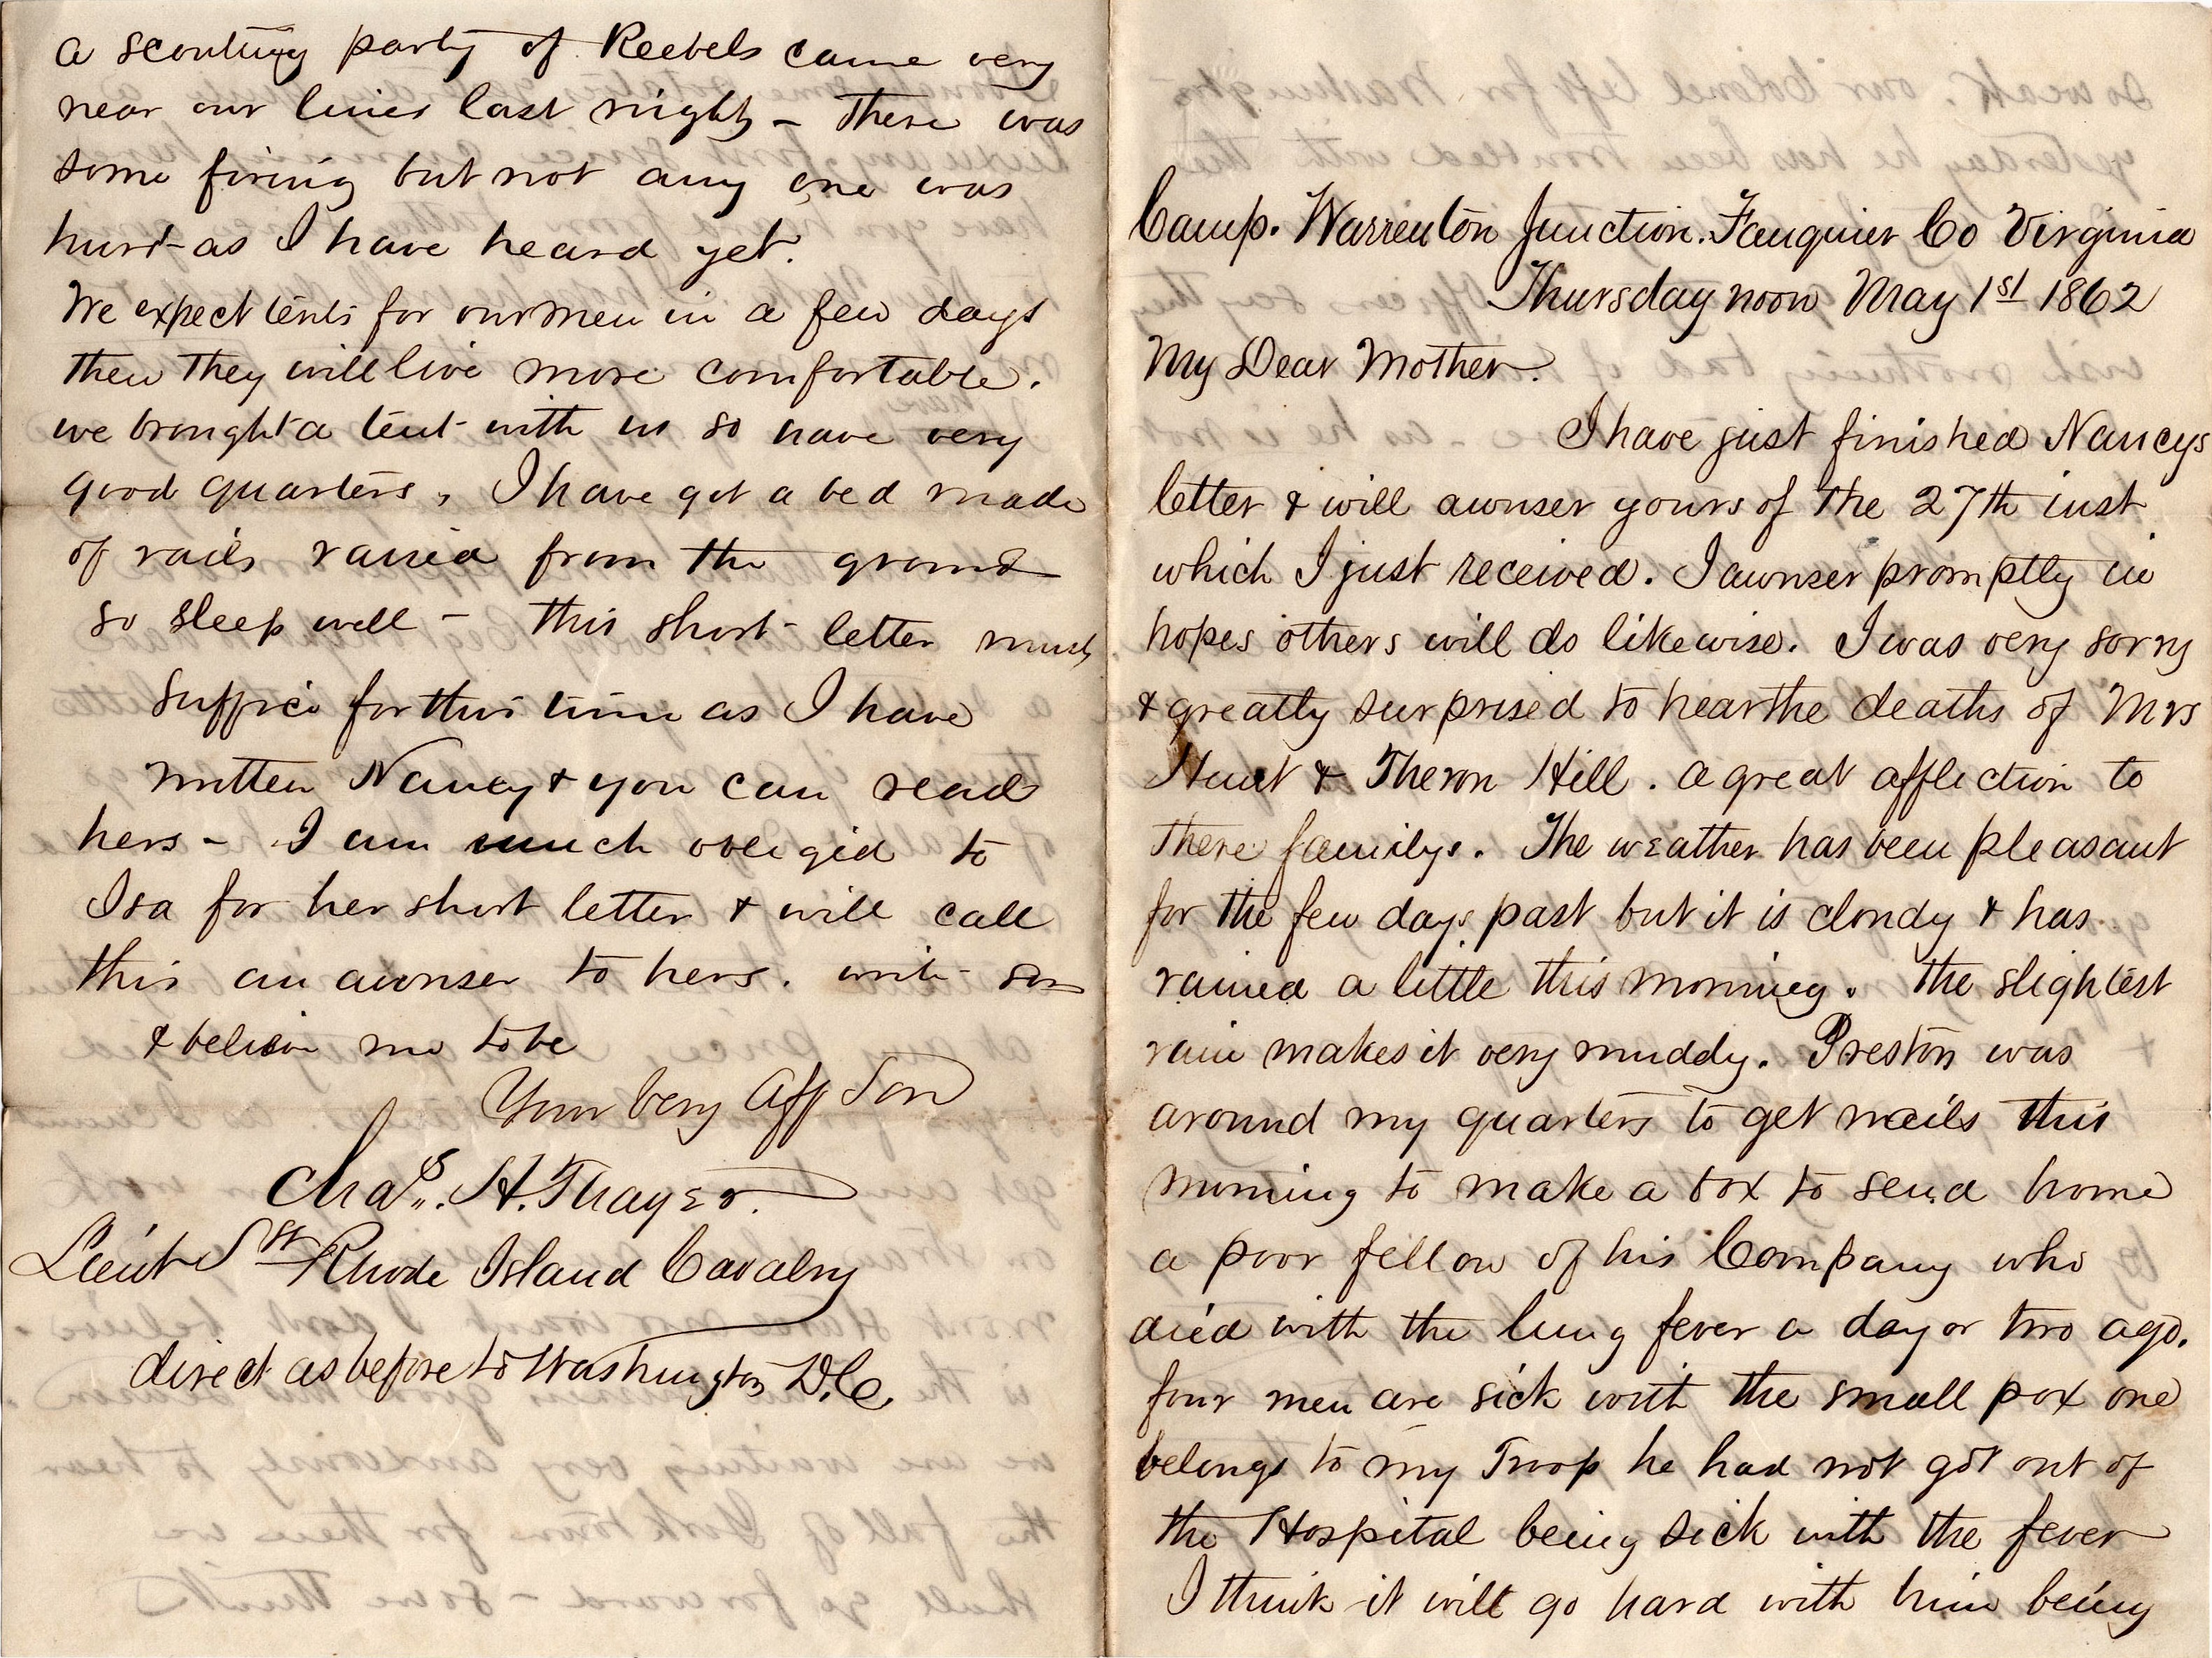 Camp. Warrenton Junction. Fauquier Co Virginia
Thursday noon May 1st 1862
My Dear Mother.
I have just finished Nancys
letter & will awnser yours of the 27th inst
which I just received. I awnser promptly in
hopes others will do likewise. I was very sorry
& greatly surprised to hear the deaths of Mrs
Hunt & Theron Hill. a great affliction to
there familys. The weather has been pleasant
for the few days past but it is cloudy & has
rained a little this morning. The slightest
rain makes it very muddy. Preston was
around my quarters to get nails this
morning to make a box to send home
a poor fellow of his Company who
died with the lung fever a day or two ago.
four men are sick with the small pox one
belongs to my Troop he had not got out of
the Hospital being sick with the fever
I think it will go hard with him being
a scouting party of Reebels came very
near our lines last night - There was
some firing but not any one was
hurt as I have heard yet.
We expect tents for our men in a few days
then they will live more comfortable.
we brought a tent with us so have very
good quarters, I have got a bed made
of rails raised from the ground
so sleep well - this short letter must
suffice for this time as I have
written Nancy & you can read
hers - I am much obliged to
Isa for her short letter & will call
this an awnser to hers. write soon
& believe me to be
Your Very Aff Son
Chas. H. Thayer.
Lieut 1st Rhode Island Cavalry
direct as before to Washington D.C.